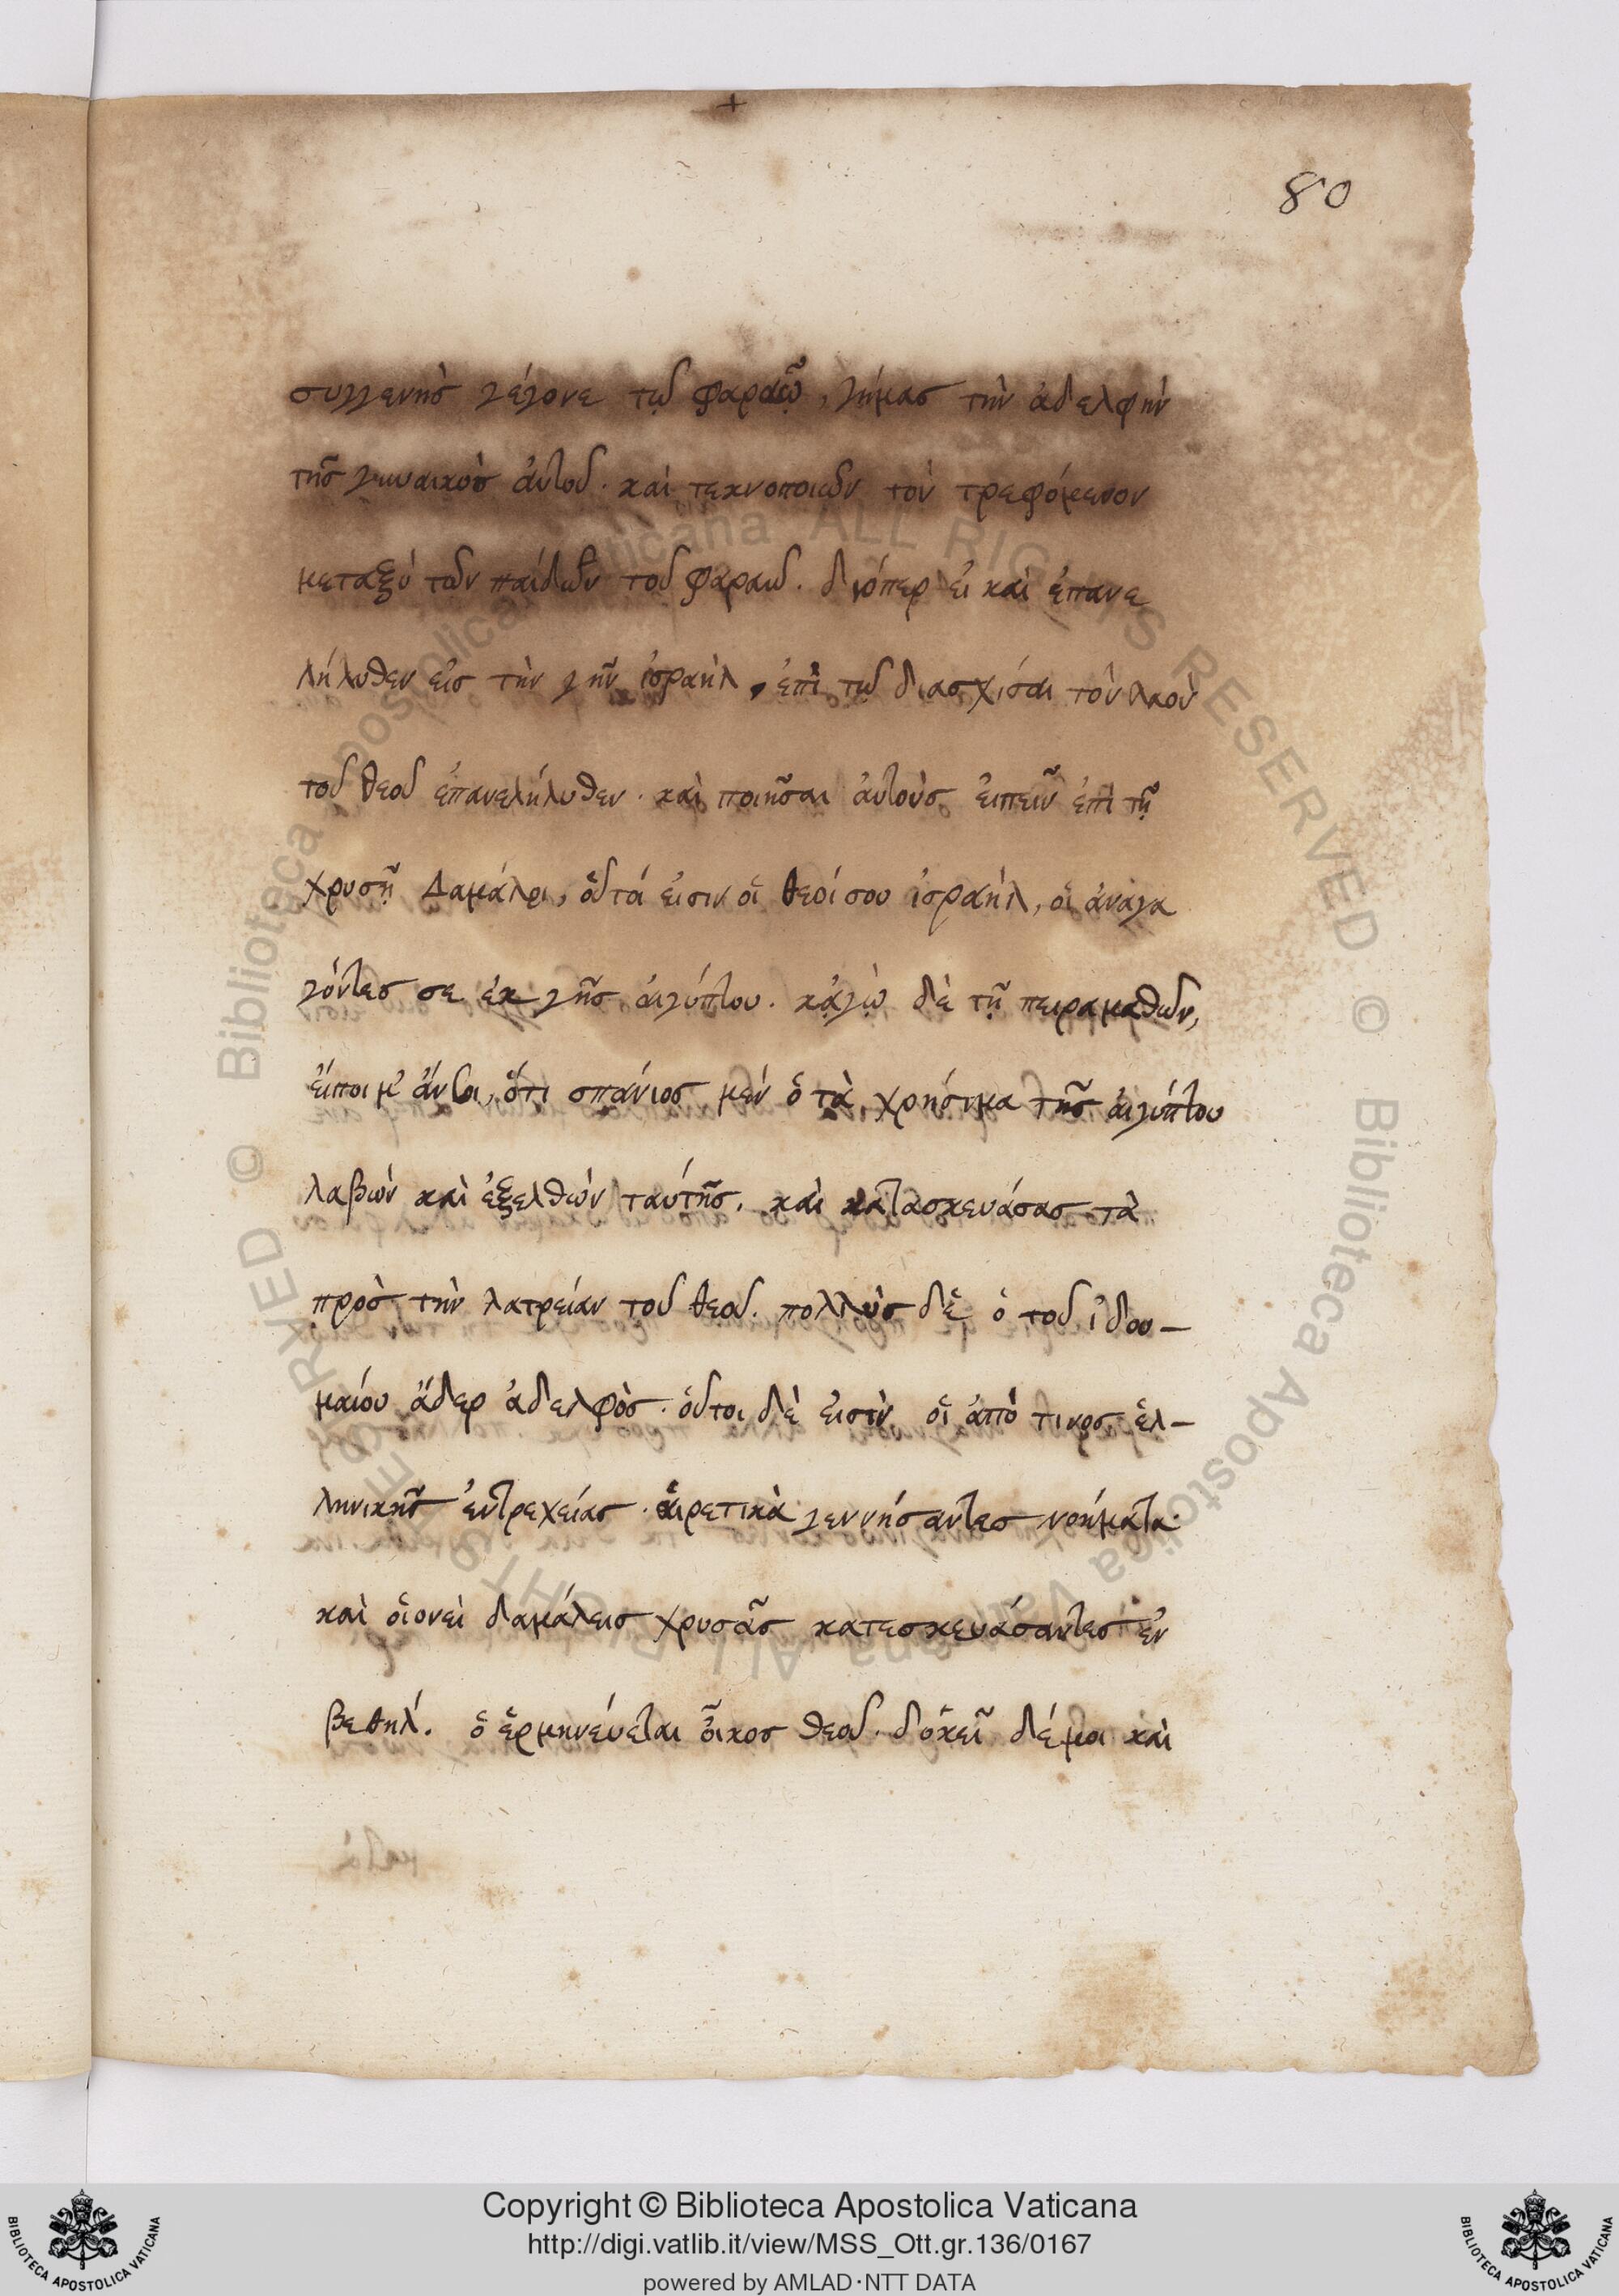 +
80
συγγενὴς γέγονε τῷ φαραῷ, γήμας τὴν ἀδελφὴν
τῆς γυναικὸς ἀυτοῦ. καὶ τεκνοποιῶν τὸν τρεφόμενον
μεταξύ τῶν παίδων τοῦ φαραω. διόπερ εἰ καὶ ἐπανε
λήλυθεν εἰς τὴν γῆν ἰσραὴλ, ἐπὶ τῷ διασχίσαι τὸν λαὸν
τοῦ θεοῦ ἐπανελήλυθεν. καὶ ποιῆσαι ἀυτοὺς ἐιπεῖν ἐπὶ τῇ
χρυσῇ Δαμάλει, οὗτά εἰσιν οἵ θεοί σου ἰσραήλ, οἱ ἀναγα
γόντες σε ἐκ γῆς ἀιγύπτου. κᾀγὼ δὲ τῇ πειραμαθων,
ἐίποιμ' ἄν σοι, ὅτι σπάνιος μέν ὁ τὰ χρήσιμα τῆς ἀιγύπτου
λαβὼν καὶ ἐξελθὼν ταύτῆς. καὶ κατασκευάσας τὰ
πρὸς τὴν λατρείαν τοῦ θεοῦ. πολλὺς δὲ ὁ τοῦ ἰδου-
μαίου ἄδερ ἀδελφὸς. οὗτοι δὲ ἐισὶν οἵ ἀπό τινος ἑλ-
ληνικῆς ἐντρεχείας. ἁιρετικὰ γεννήσαντες νοήματα.
καὶ ὁἱονεὶ δαμάλεις χρυσᾶς κατεσκευάσαντες ἐν
βεθηλ. ὅ ἑρμηνεύεται ὂικος θεοῦ. δοκεῖ δέ μοι καὶ
Copyright © Biblioteca Apostolica Vaticana
http://digi.vatlib.it/view/MSS_Ott.gr.136/0167
powered by AMLAD·NTT DATA
BIBLIOTECA APOSTOLICA VATICANA
BIBLIOTECA APOSTOLICA VATICANA
© Biblioteca Apostolica Vaticana ALL RIGHTS RESERVED © Biblioteca Apostolica Vaticana ALL RIGHTS RESERVED